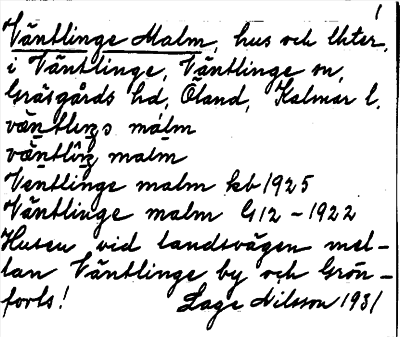 1
Väntlinge Malm, hus och lhter,
i Väntlinge, Väntlinge sn,
Gräsgårds hd, Öland, Kalmar l.
væntlıŋs málm
væntlîŋ malm
Ventlinge malm kb 1925
Väntlinge malm G12 - 1922
Husen vid landsvägen mel-
lan Väntlinge by och Grön-
forls!
Lage Nilsson 1931